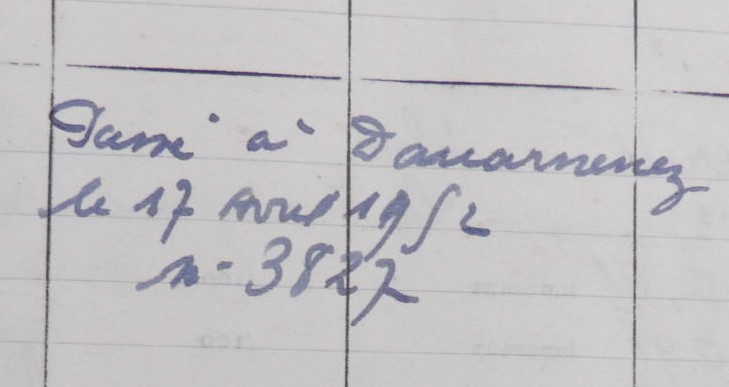 Passé à Douarnenez
le 17 Avril 1952
n° 3827